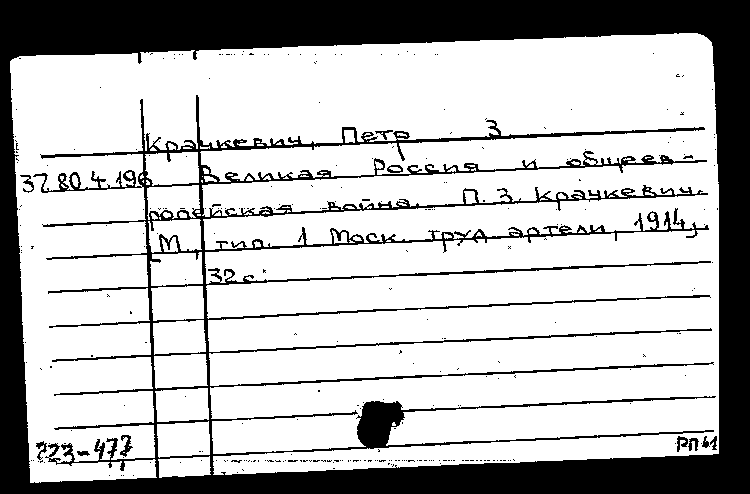 Крачкевич, Петр З.
37.80.4.196 Великая Россия и общеев-
ропейская война. П. З. Крачкевич.
[М., тип. 1 Моск. труд артели, 1914].
32 с.
223-477 РП 41